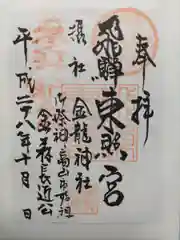 奉拝
飛騨東照宮
摂社
金龍神社
御祭神 高山市開祖
金森長近公
平成二十八年十月 日